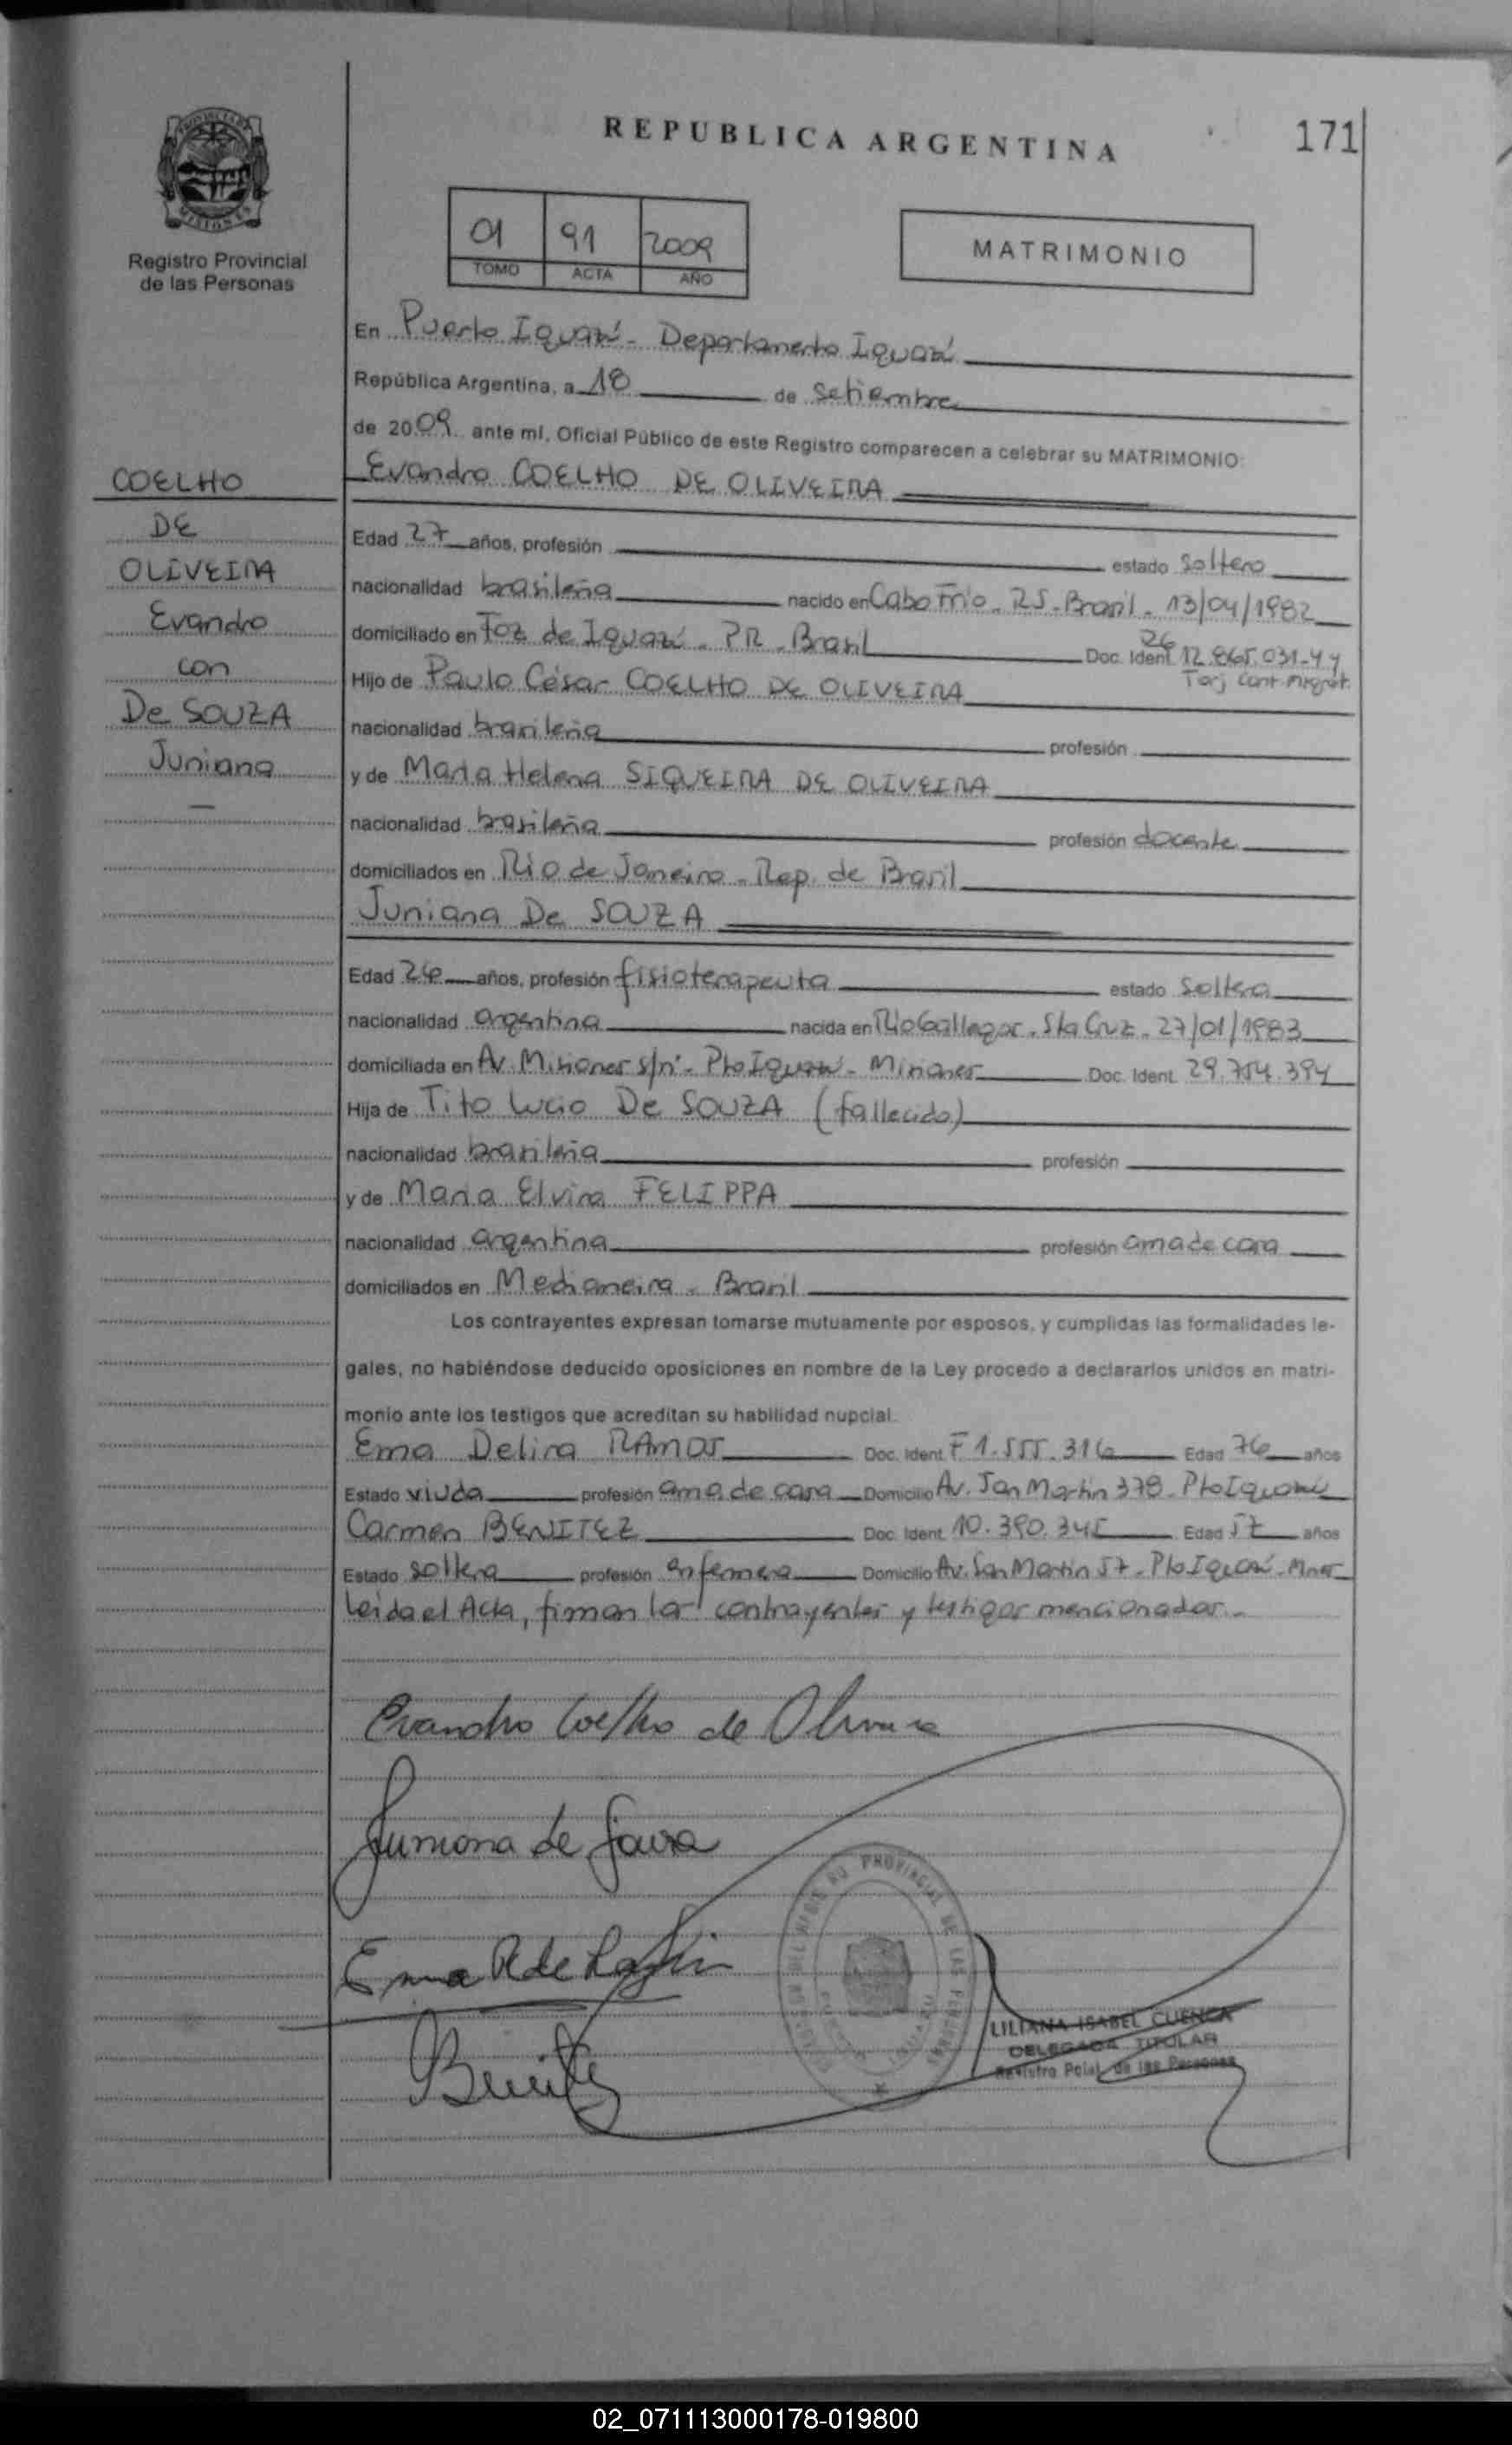 REPUBLICA ARGENTINA
171
PROVINCIA DE MISIONES
Registro Provincial
de las Personas
01 91 2009
TOMO ACTA AÑO
MATRIMONIO
En Puerto Iguazú - Departamento Iguazú
República Argentina, a 18 de Setiembre
de 2009 ante mi, Oficial Público de este Registro comparecen a celebrar su MATRIMONIO:
Evandro COELHO DE OLIVEIRA
COELHO
DE
OLIVEIRA
Evandro
con
De SOUZA
Juniana
Edad 27 años, profesión estado soltero
nacionalidad brasileña nacido en Cabo Frío - RJ - Brasil - 13/04/1982
domiciliado en Foz de Iguazú - PR - Brasil Doc. Ident. 12.865.031-4 y
26
Tarj Cont. Migrat.
Hijo de Paulo César COELHO DE OLIVEIRA
nacionalidad brasileña profesión
y de Maria Helena SIQUEIRA DE OLIVEIRA
nacionalidad brasileña profesión docente
domiciliados en Rio de Janeiro - Rep. de Brasil
Juniana De SOUZA
Edad 26 años, profesión fisioterapeuta estado soltera
nacionalidad argentina nacida en Rio Gallegos - Sta Cruz - 27/01/1983
domiciliada en Av. Misiones s/nº - Pto Iguazú - Misiones Doc. Ident. 29.754.394
Hija de Tito Lucio De SOUZA (fallecido)
nacionalidad brasileña profesión
y de Maria Elvira FELIPPA
nacionalidad argentina profesión ama de casa
domiciliados en Medianeira - Brasil
Los contrayentes expresan tomarse mutuamente por esposos, y cumplidas las formalidades le-
gales, no habiéndose deducido oposiciones en nombre de la Ley procedo a declararlos unidos en matri-
monio ante los testigos que acreditan su habilidad nupcial.
Ema Delira RAMOS Doc. Ident. F 1.555.316 Edad 76 años
Estado viuda profesión ama de casa Domicilio Av. San Martín 378 - Pto Iguazú
Carmen BENITEZ Doc. Ident. 10.390.345 Edad 57 años
Estado soltera profesión enfermera Domicilio Av. San Martin 57 - Pto Iguazú - Mnes
Leida el Acta, firman los contrayentes y testigos mencionados.-
Evandro Coelho de Oliveira
Juniana de Souza
Ema R de
Benitez
LILIANA ISABEL CUENCA
DELEGADA TITULAR
Registro Pcial. de las Personas
02_071113000178-019800